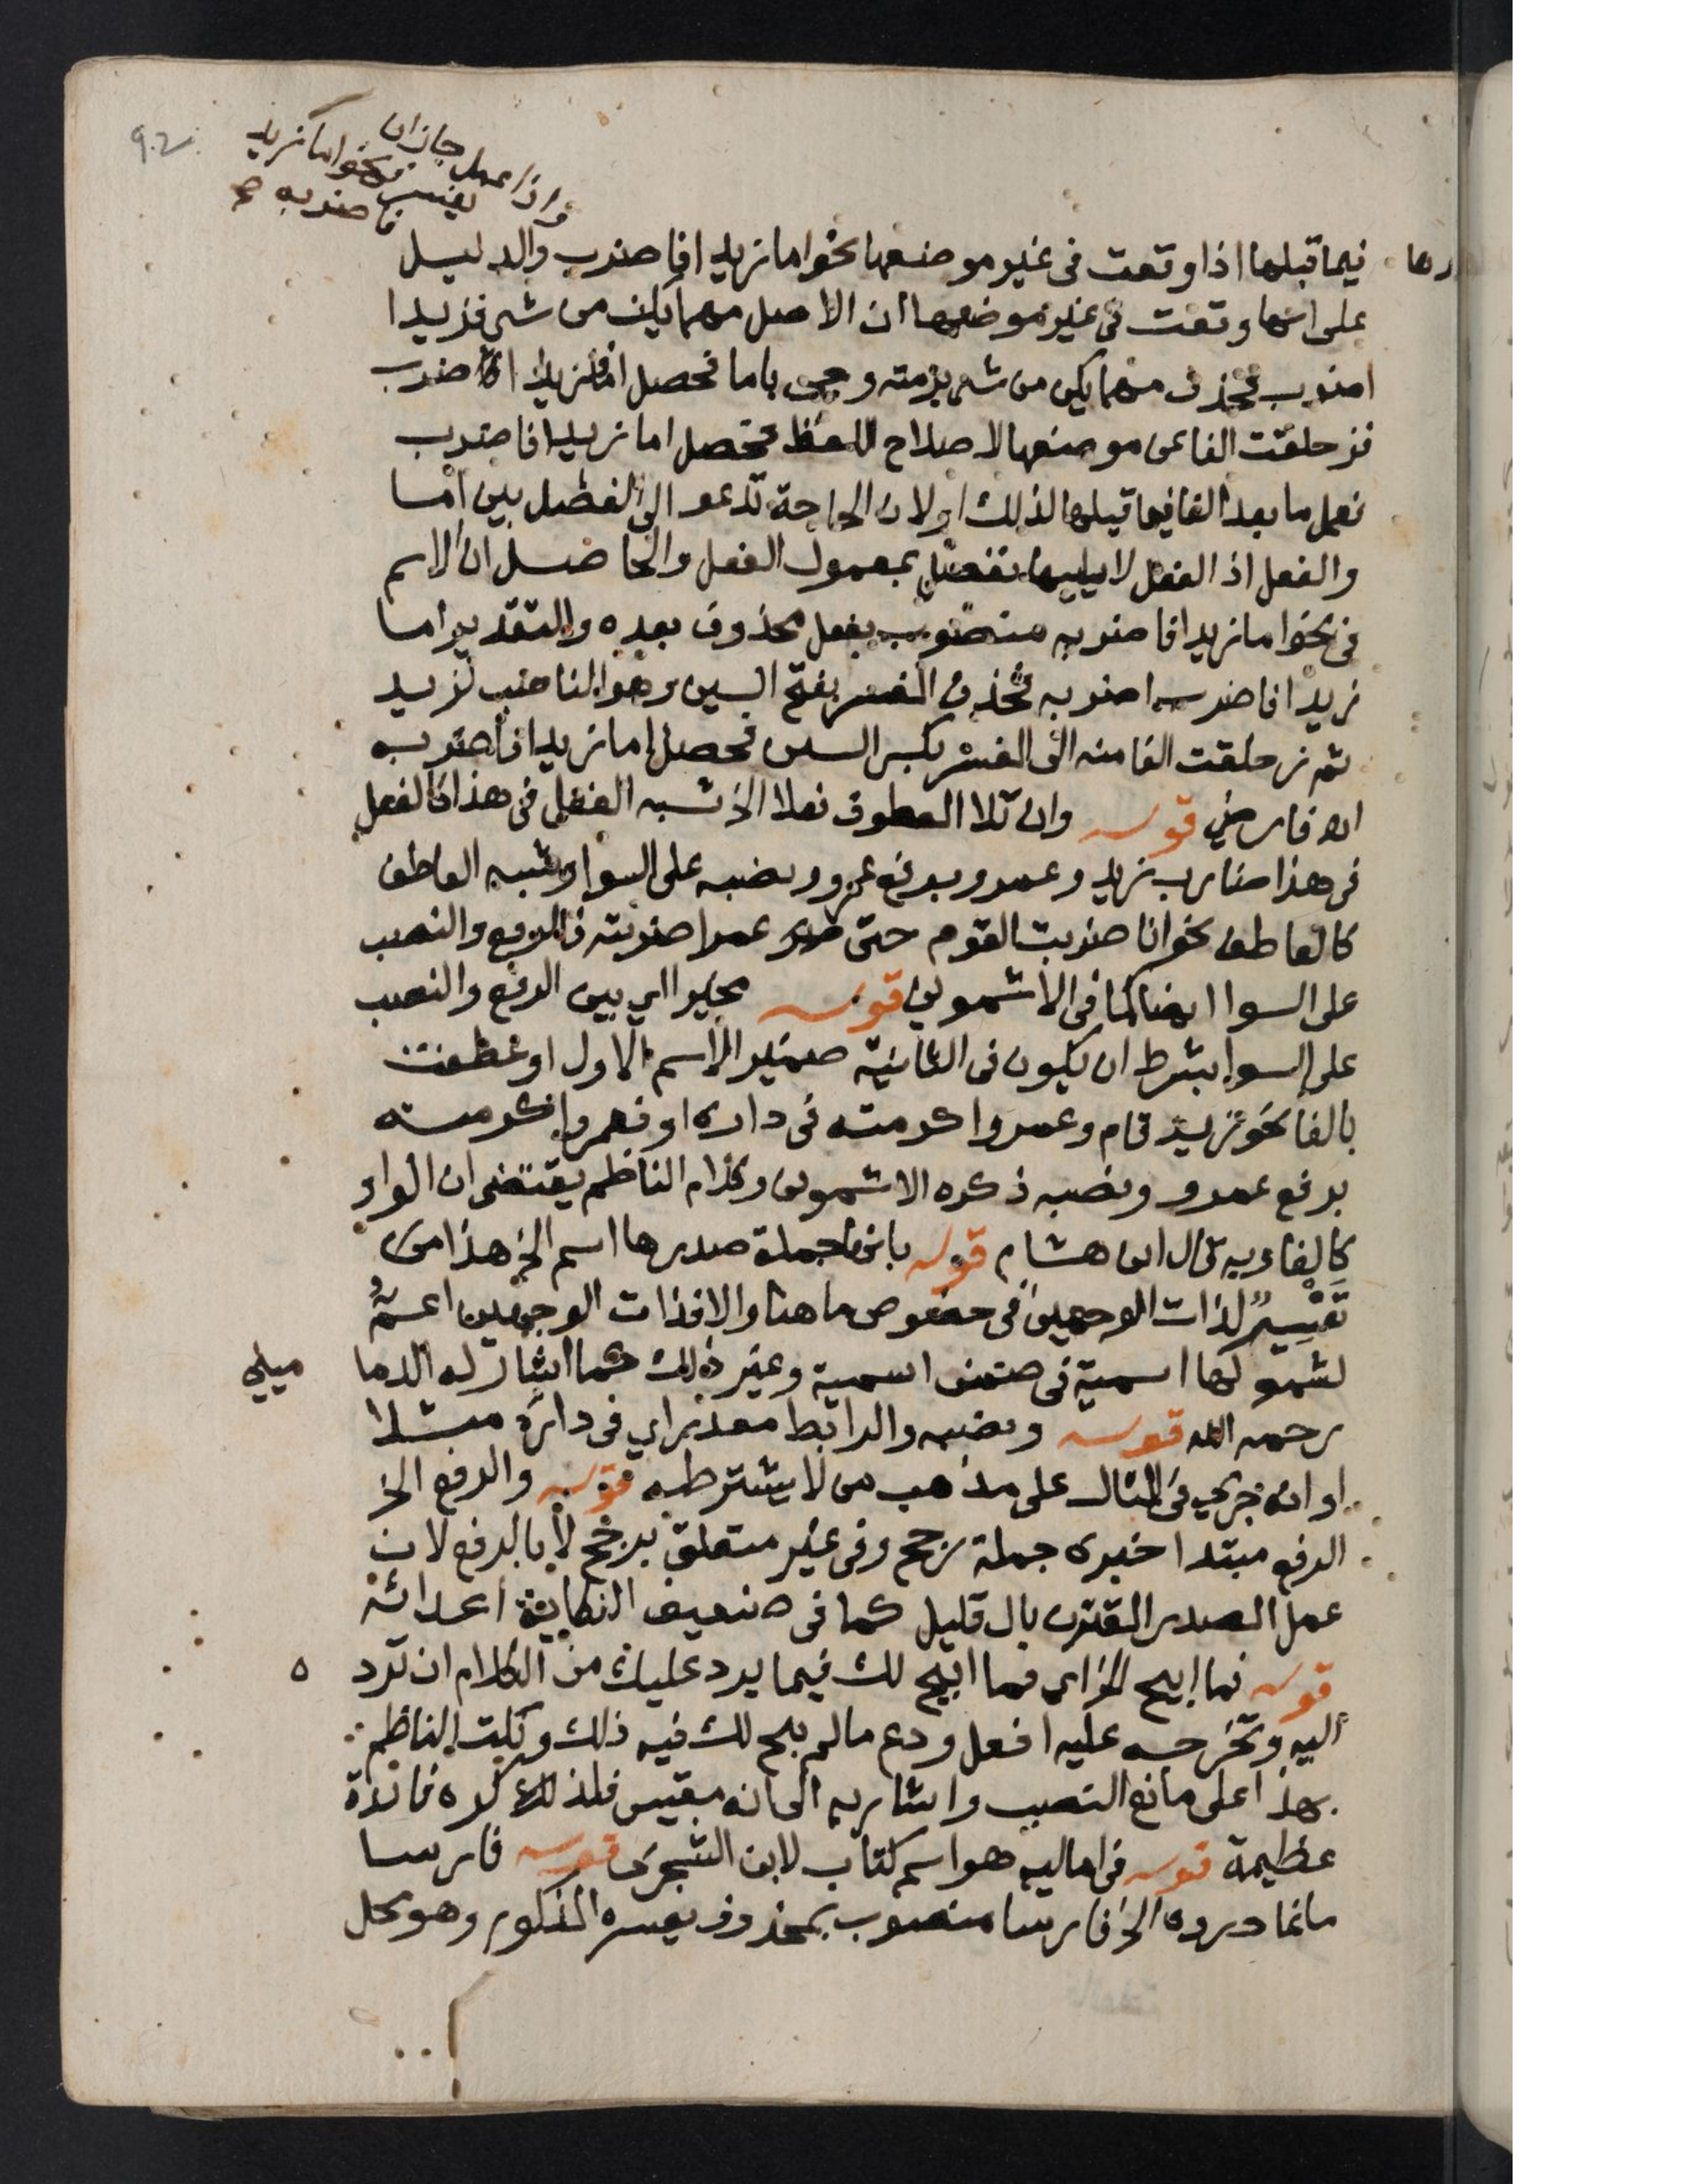 92
واذا عمل جاز ان
يفسر فى نحو اما زيد
فاضربه صح
فيما قبلها اذا وقعت فى غير موضعها نحو اما زيدا فاضرب والدليل
على انها وقعت فى غير موضعها ان الاصل مهما يكن من شى فزيدا
اضرب فحذف مهما يكن من شى برمته وجى باما فحصل اما فزيدا اضرب
فزحلقت الفا عن موضعها لاصلاح اللفظ فحصل اما زيدا فاضرب
فعمل ما بعد الفا فيما قبلها لذلك ولان الحاجة تدعو الى الفصل بين اما
والفعل اذ الفعل لا يليها ففصل بمعمول الفعل والحاصل ان الاسم
فى نحو اما زيدا فاضربه منصوب بفعل محذوف بعده والتقدير اما
زيدا فاضرب اضربه فحذف المفسر بفتح السين وهو الناصب لزيد
ثم زحلقت الفا منه الى المفسر بكسر السين فحصل اما زيدا فاضربه
اه فارضى قوله وان تلا المعطوف فعلا الخ شبه الفعل فى هذا كالفعل
فى هذا ضارب زيد وعمرو برفع عمرو ونصبه على السوا وشبه العاطف
كالعاطف نحو انا ضربت القوم حتى عمرا ضربته فالرفع والنصب
على السوا ايضا كما فى الاشمونى قوله مخيرا اى بين الرفع والنصب
على السوا بشرط ان يكون فى الثانية ضمير الاسم الاول او عطفت
بالفا نحو زيد قام وعمرو اكرمته فى داره او فعمرو اكرمته
برفع عمرو ونصبه ذكره الاشمونى وكلام الناظم يقتضى ان الواو
كالفا وبه قال ابن هشام قوله بانها جملة صدرها اسم الخ هذا من
تفسير لذات الوجهين فى خصوص ما هنا والا فذات الوجهين اعم
لشمولها اسمية فى ضمن اسمية وغير ذلك كما اشار له الدما
مينى
رحمه الله قوله ونصبه والرابط مقدر اى فى داره مثلا
او انه جرى فى المثال على مذهب من لا يشترطه قوله والرفع الخ
الرفع مبتدا خبره جملة رجح وفى غير متعلق برجح لا بالرفع لان
عمل المصدر المقترن بال قليل كما فى ضعيف النكاية اعداءه
قوله فما ابيح الخ اى فما ابيح لك فيما يرد عليك من الكلام ان ترد
اليه وتخرجه عليه افعل ودع ما لم يبح لك فيه ذلك ونكت الناظم
بهذا على مانع النصب واشار به الى انه مقيس فلذلك ذكره فائدة
عظيمة قوله فى اماليه هو اسم كتاب لابن الشجرى قوله فارسا
ما غادروه الخ فارسا منصوب بمحذوف يفسره المذكور وهو محل